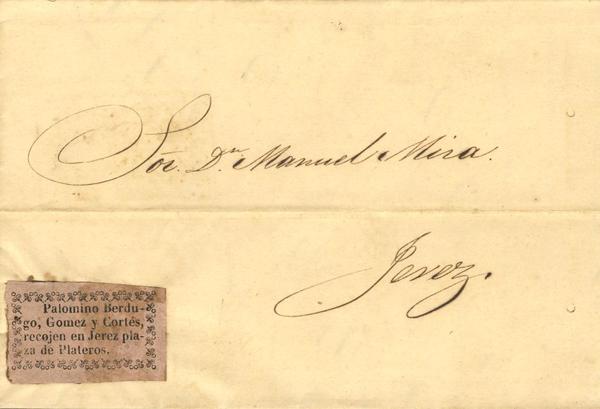 Sór. Dn. Manuel Mira.
Jerez.
Palomino Berdu-
go, Gomez y Cortés,
recojen en Jerez pla-
za de Plateros.